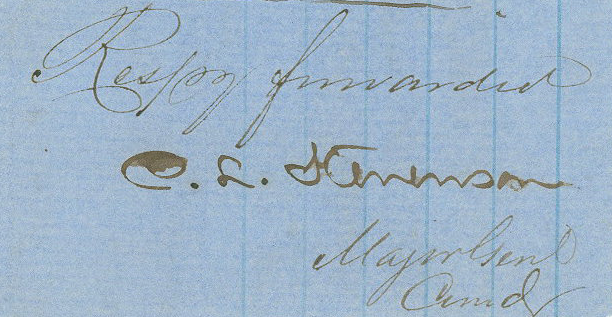 Respy forwarded
C. L. Stevenson
Major Genl
Comdg